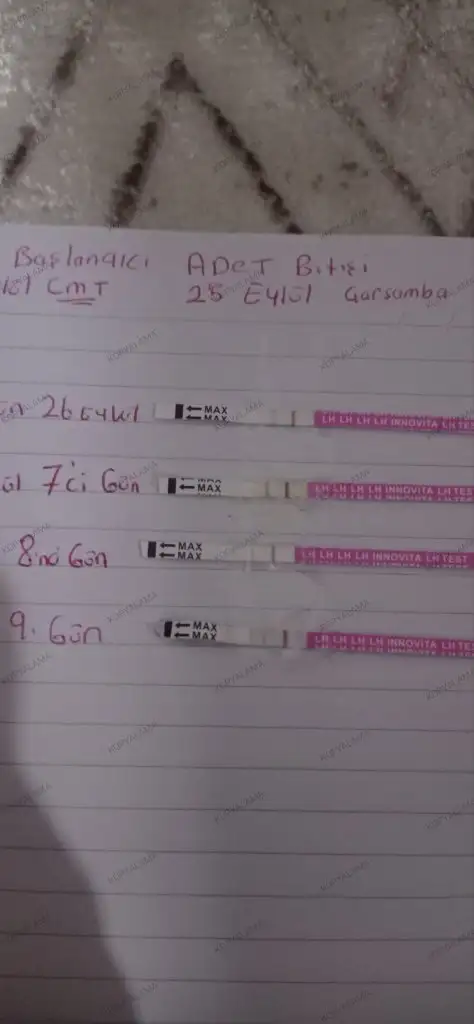 Başlangıcı ADET Bitişi
Cmt 25 Eylül Çarşamba
26 Eylül
MAX
MAX
LH LH LH LH INNOVITA LH TES
7'ci Gün
MAX
LH LH LH LH INNOVITA LH TEST
8inci Gün
MAX
MAX
LH LH LH LH INNOVITA LH TEST
9. Gün
MAX
MAX
LH LH LH LH INNOVITA LH TES
KOPYALAMA